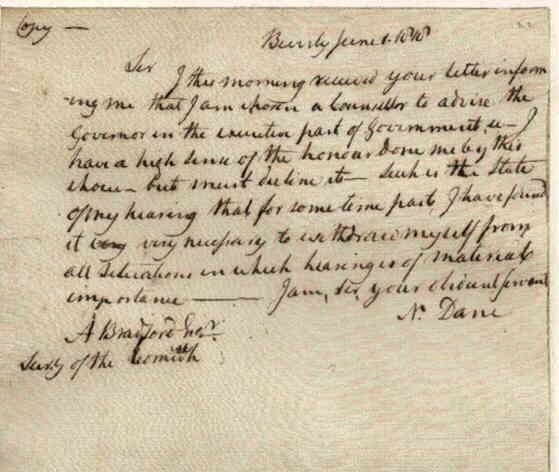 Copy —
Beverly June 1. 1818
Sir I this morning received your letter inform
ing me that I am chosen a Counsellor to advise the
Governor in the executive part of Government, &c – I
have a high sense of the honour done me by this
choice – but must decline it – such is the State
of my hearing that for some time past I have found
it very necessary to withdraw myself from
all Situations in which hearing is of material
importance ——— I am, Sir, your obedient servant
N. Dane
A Bradford Esqr.
Secry of the Comwth